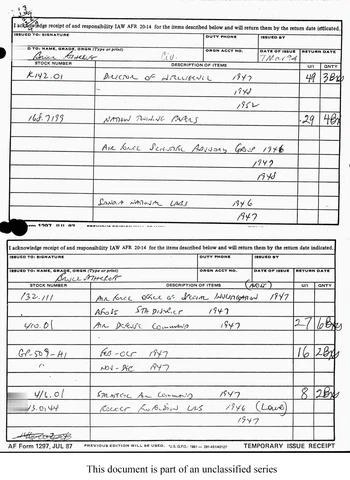 I acknowledge receipt of and responsibility IAW AFR 20-14 for the items described below and will return them by the return date indicated.
ISSUED TO: SIGNATURE DUTY PHONE ISSUED BY
D TO: NAME, GRADE, ORGN (Type or print) ORGN ACCT NO. DATE OF ISSUE RETURN DATE
Civ. 7 Mar 94
STOCK NUMBER DESCRIPTION OF ITEMS U/I QNTY
K142.01 DIRECTOR OF INTELLIGENCE 1947 49 3Bxs
1948
1952
168.7199 NATHAN TWINING PAPERS 29 4Bxs
AIR FORCE SCIENTIFIC ADVISORY GROUP 1946
1947
1948
SANDIA NATIONAL LABS 1946
1947
1297, JUL 87
I acknowledge receipt of and responsibility IAW AFR 20-14 for the items described below and will return them by the return date indicated.
ISSUED TO: SIGNATURE DUTY PHONE ISSUED BY
ISSUED TO: NAME, GRADE, ORGN (Type or print) ORGN ACCT NO. DATE OF ISSUE RETURN DATE
STOCK NUMBER DESCRIPTION OF ITEMS U/I QNTY
132.111 AIR FORCE OFFICE OF SPECIAL INVESTIGATION 1947
AFOSI 5TH DISTRICT 1947
410.01 AIR DEFENSE COMMAND 1947 27 6Bxs
GP-509-HI FEB-OCT 1947 16 2Bxs
" NOV-DEC 1947
416.01 STRATEGIC AIR COMMAND 1947 8 2Bxs
ROCKET LABS 1946
1947
AF Form 1297, JUL 87 PREVIOUS EDITION WILL BE USED. TEMPORARY ISSUE RECEIPT
This document is part of an unclassified series